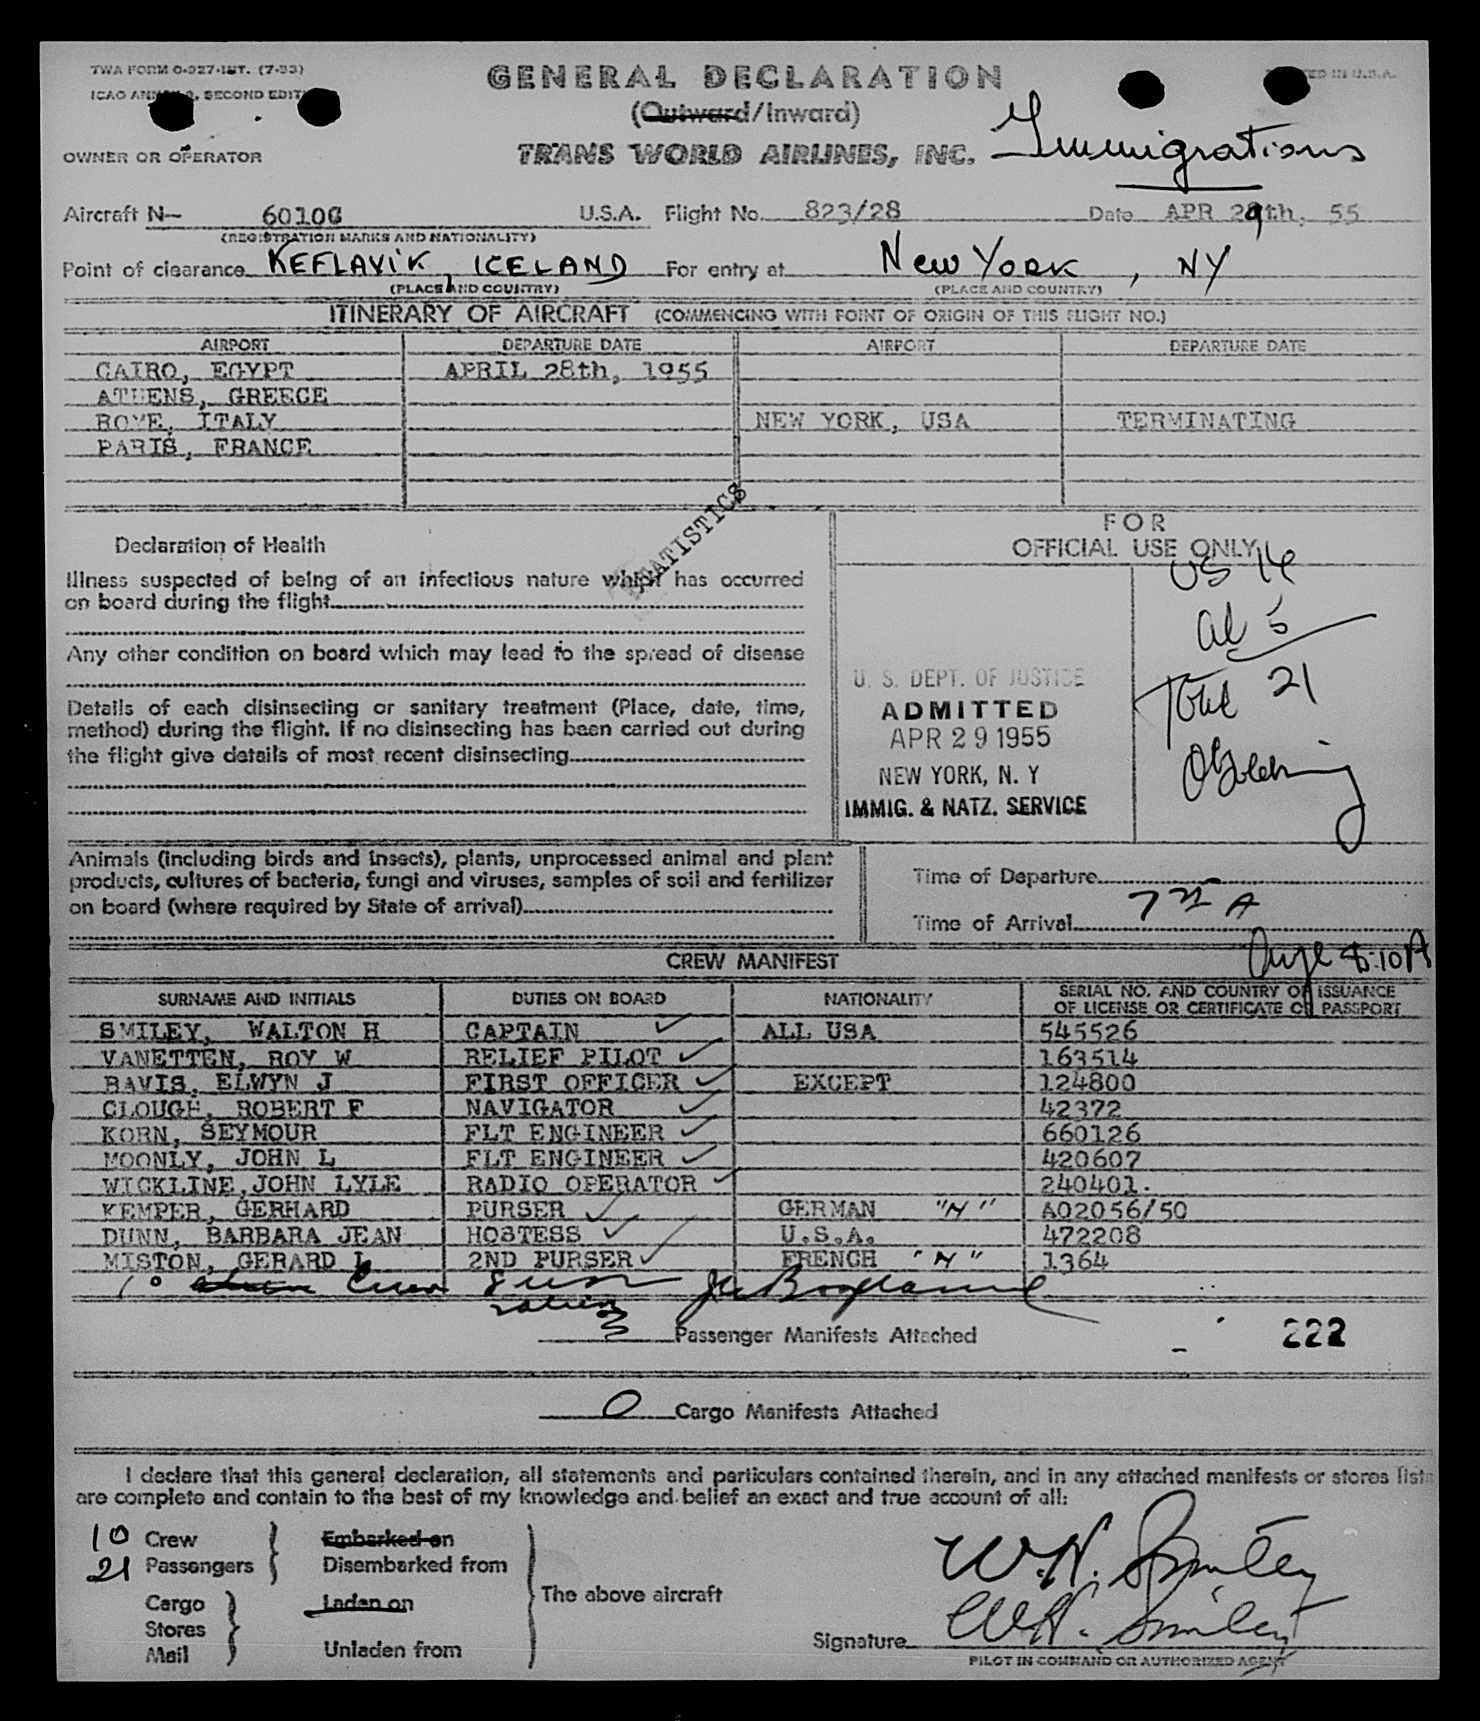 TWA FORM O-927-INT. (7-53)
GENERAL DECLARATION
(Outward/Inward)
OWNER OR OPERATOR
TRANS WORLD AIRLINES, INC.
Immigrations
Aircraft N- 6010C U.S.A. Flight No. 823/28 Date APR 29th, 55
(REGISTRATION MARKS AND NATIONALITY)
Point of clearance KEFLAVIK, ICELAND For entry at New York, NY
(PLACE AND COUNTRY) (PLACE AND COUNTRY)
ITINERARY OF AIRCRAFT (COMMENCING WITH POINT OF ORIGIN OF THIS FLIGHT NO.)
AIRPORT DEPARTURE DATE AIRPORT DEPARTURE DATE
CAIRO, EGYPT APRIL 28th, 1955
ATHENS, GREECE
ROME, ITALY NEW YORK, USA TERMINATING
PARIS, FRANCE
STATISTICS
Declaration of Health
Illness suspected of being of an infectious nature which has occurred
on board during the flight
Any other condition on board which may lead to the spread of disease
Details of each disinsecting or sanitary treatment (Place, date, time,
method) during the flight. If no disinsecting has been carried out during
the flight give details of most recent disinsecting
FOR
OFFICIAL USE ONLY
US 16
Al 5
Total 21
U. S. DEPT. OF JUSTICE
ADMITTED
APR 29 1955
NEW YORK, N. Y
IMMIG. & NATZ. SERVICE
Animals (including birds and insects), plants, unprocessed animal and plant
products, cultures of bacteria, fungi and viruses, samples of soil and fertilizer
on board (where required by State of arrival)
Time of Departure
Time of Arrival
CREW MANIFEST
SURNAME AND INITIALS DUTIES ON BOARD NATIONALITY SERIAL NO. AND COUNTRY OF ISSUANCE
OF LICENSE OR CERTIFICATE OR PASSPORT
SMILEY, WALTON H CAPTAIN ALL USA 545526
VANETTEN, ROY W RELIEF PILOT 163514
BAVIS, ELWYN J FIRST OFFICER EXCEPT 124800
CLOUGH, ROBERT F NAVIGATOR 42372
KORN, SEYMOUR FLT ENGINEER 660126
MOONLY, JOHN L FLT ENGINEER 420607
WICKLINE, JOHN LYLE RADIO OPERATOR 240401.
KEMPER, GERHARD PURSER GERMAN "N" A02056/50
DUNN, BARBARA JEAN HOSTESS U.S.A. 472208
MISTON, GERARD L 2ND PURSER FRENCH "N" 1364
Passenger Manifests Attached
222
0 Cargo Manifests Attached
I declare that this general declaration, all statements and particulars contained therein, and in any attached manifests or stores lists
are complete and contain to the best of my knowledge and belief an exact and true account of all:
10 Crew Embarked on
21 Passengers Disembarked from
The above aircraft
Cargo Laden on
Stores
Mail Unladen from
W.H. Smiley
Signature W.H. Smiley
PILOT IN COMMAND OR AUTHORIZED AGENT